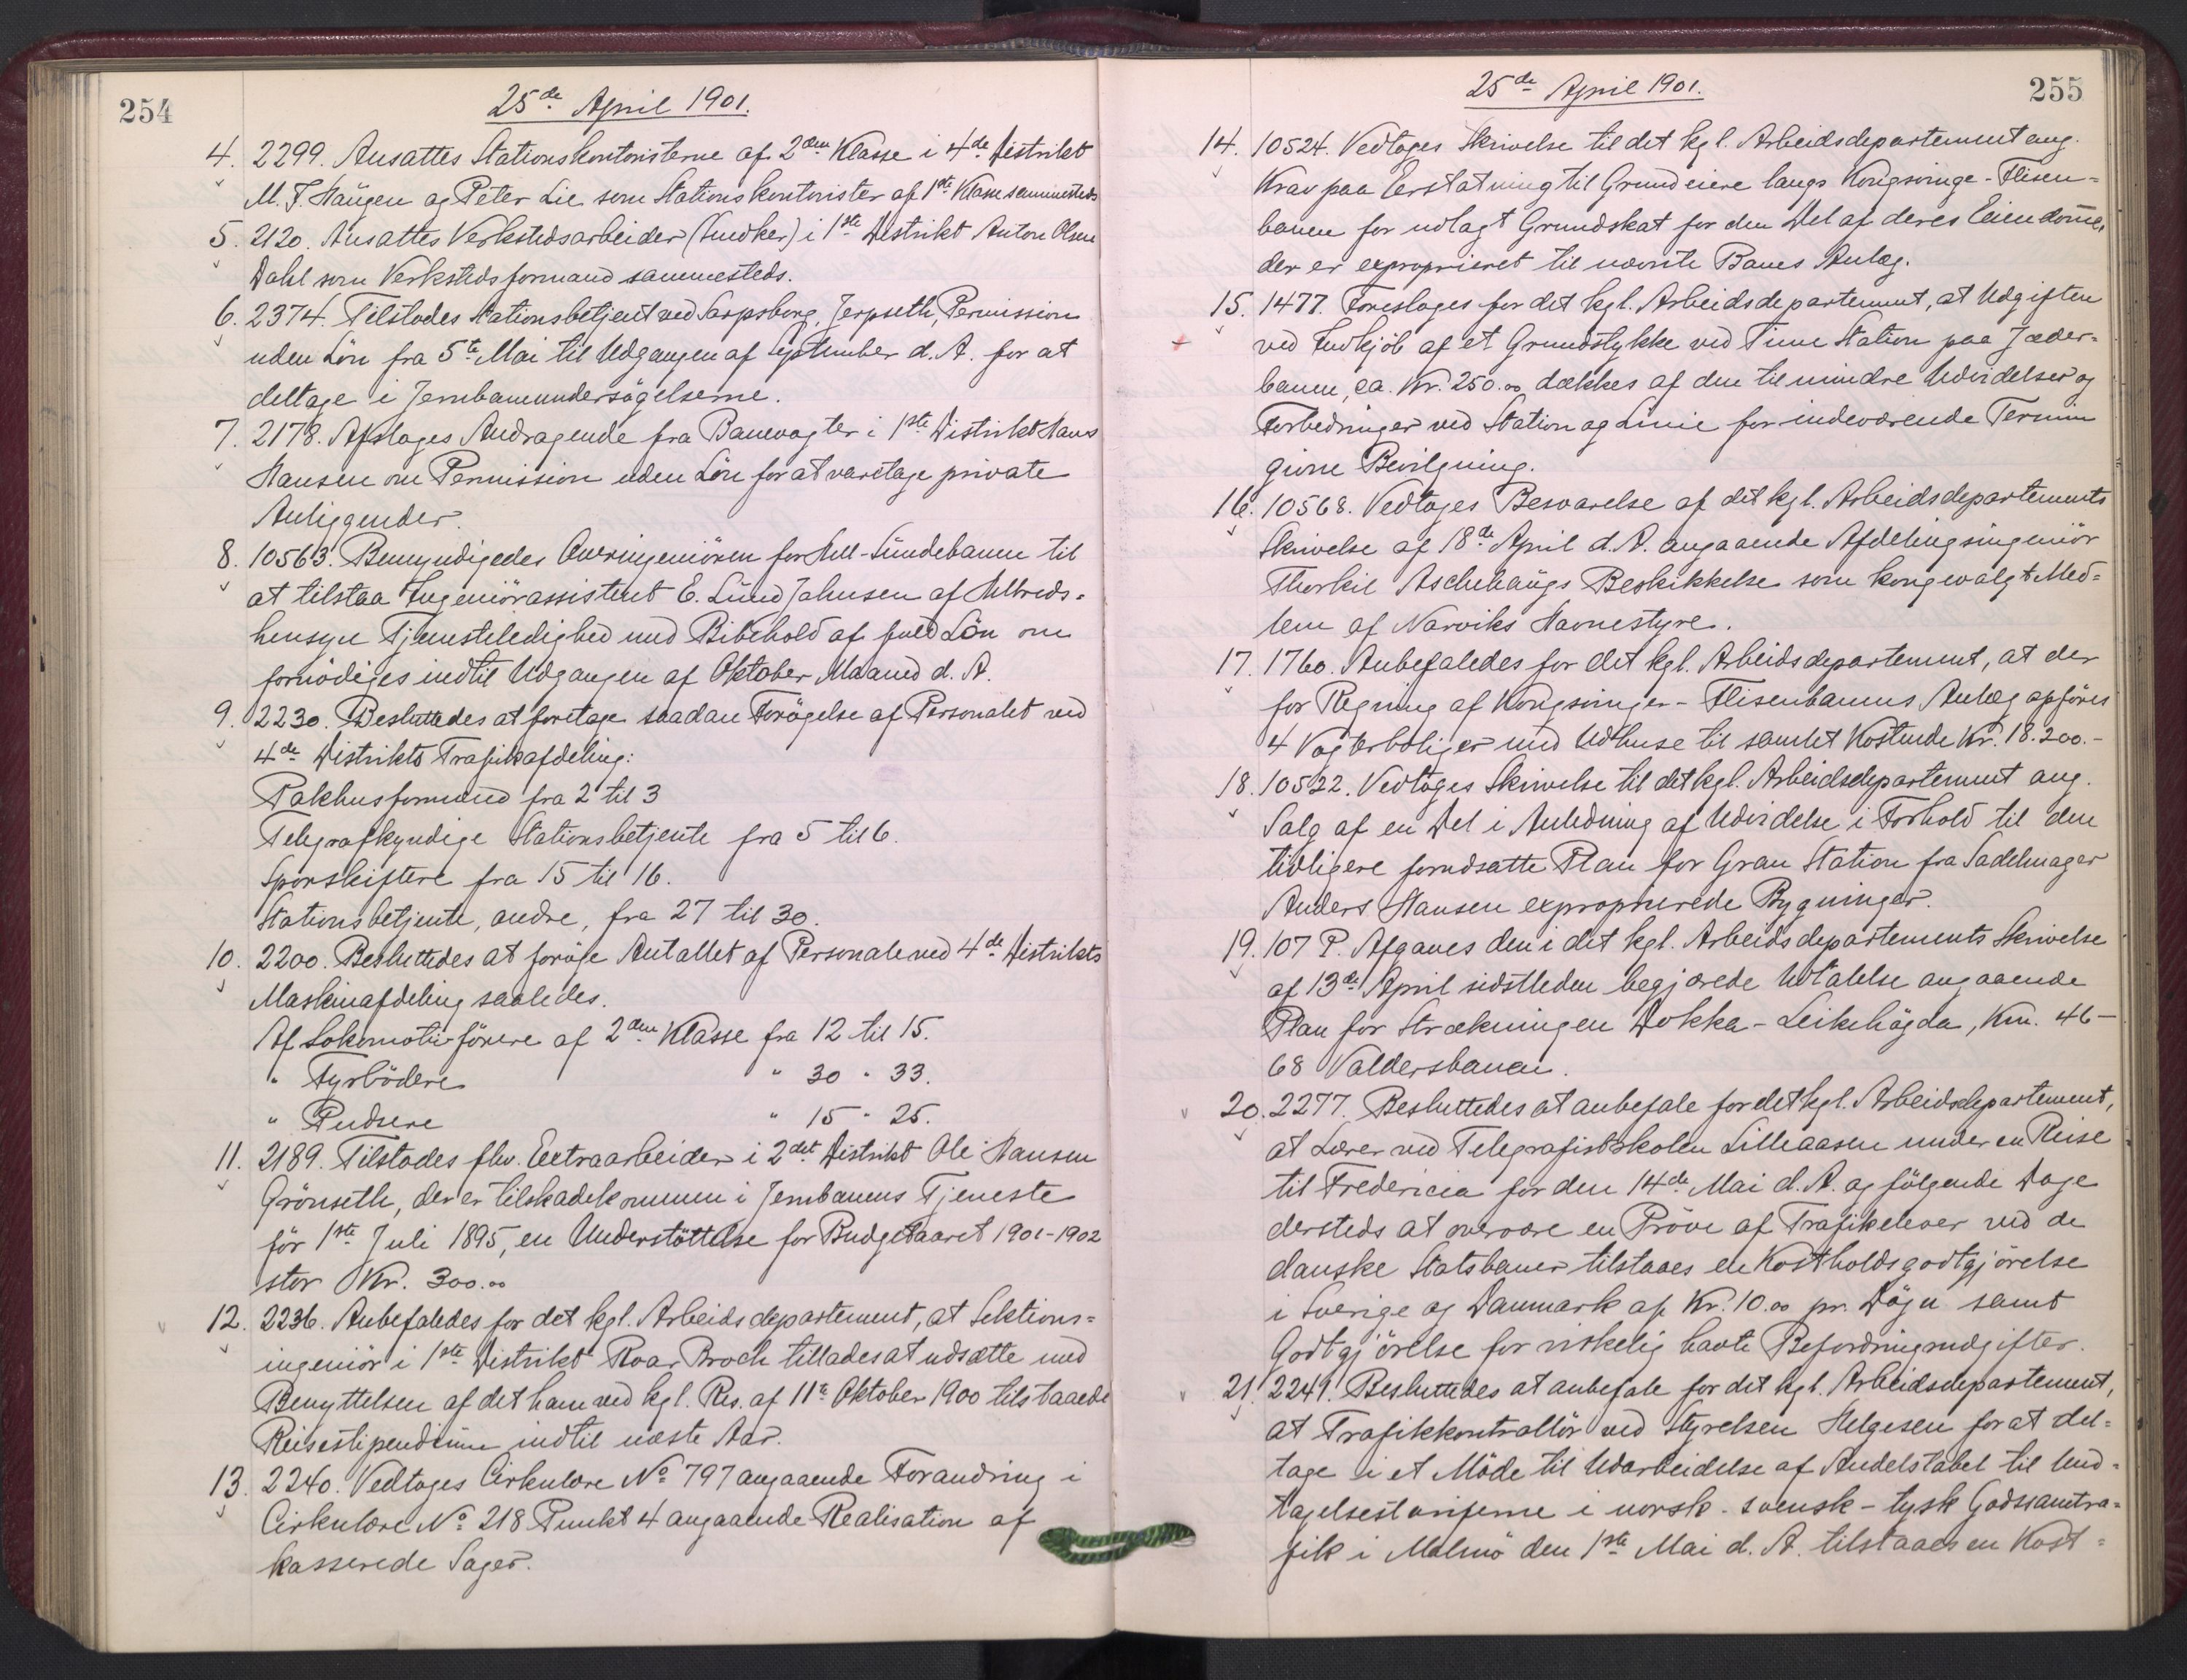 254
25de April 1901.
4. 2299. Ansattes Stationskontoristerne af 2den Klasse i 4de Distrikt
M. F. Haugen og Peter Lie som Stationskontorister af 1ste Klasse sammesteds
5. 2120. Ansattes Verkstedsarbeider (Snedker) i 1ste Distrikt Anton Olsen
Dahl som Verkstedsformand sammesteds.
6. 2374. Tilstodes Stationsbetjent ved Sarpsborg, Jerpseth, Permission
uden Lön fra 5te Mai til Udgangen af September d. A. for at
deltage i Jernbaneundersögelserne.
7. 2178. Afsloges Andragende fra Banevogter i 1ste Distrikt Hans
Hansen om Permission uden Lön for at varetage private
Anliggender.
8. 10563. Bemyndigedes Overingeniören for Hell-Sundebanen til
at tilstaa Ingeniörassistent E. Lund Johnsen af Helbreds-
hensyn Tjenesteledighed med Bibehold af fuld Lön om
fornödiges indtil Udgangen af Oktober Maaned d. A.
9. 2230. Besluttedes at foretage saadan Forögelse af Personalet ved
4de Distrikts Trafikafdeling:
Pakhusformænd fra 2 til 3
Telegrafkyndige Stationsbetjente fra 5 til 6.
Sporskiftere fra 15 til 16.
Stationsbetjente, andre, fra 27 til 30.
10. 2200. Besluttedes at foröge Antallet af Personale ved 4de Distrikts
Maskinafdeling saaledes.
Af Lokomotivförere af 2den Klasse fra 12 til 15.
" Fyrbödere " 30 " 33.
" Pudsere " 15 " 25.
11. 2189. Tilstodes fhv. Extraarbeider i 2det Distrikt Ole Hansen
Grönseth, der er tilskadekommen i Jernbanens Tjeneste
för 1ste Juli 1895, en Understöttelse for Budgetaaret 1901-1902
stor Kr. 300.00
12. 2236. Anbefaledes for det kgl. Arbeidsdepartement, at Sektions-
ingeniör i 1ste Distrikt Roar Broch tillades at udsætte med
Benyttelsen af det ham ved kgl. Res. af 11te Oktober 1900 tilstaaede
Reisestipendium indtil næste Aar.
13. 2240. Vedtoges Cirkulære No 797 angaaende Forandring i
Cirkulære No 218 Punkt 4 angaaende Realisation af
kasserede Sager.
255
25de April 1901.
14. 10524. Vedtoges Skrivelse til det kgl. Arbeidsdepartement ang.
Krav paa Erstatning til Grundeiere langs Kongsvinge-Flisen-
banen for udlagt Grundskat for den Del af deres Eiendomme,
der er exproprieret til nævnte Banes Anlæg.
15. 1477. Foresloges for det kgl. Arbeidsdepartement, at Udgiften
ved Indkjöb af et Grundstykke ved Time Station paa Jæder-
banen, ca. Kr. 250.00, dækkes af den til mindre Udvidelser og
Forbedringer ved Station og Linie for indeværende Termin
givne Bevilgning.
16. 10568. Vedtoges Besvarelse af det kgl. Arbeidsdepartements
Skrivelse af 18de April d. A. angaaende Afdelingsingeniör
Thorkil Aschehougs Beskikkelse som kongevalgt Med-
lem af Narviks Havnestyre.
17. 1760. Anbefaledes for det kgl. Arbeidsdepartement, at der
for Regning af Kongsvinger-Flisenbanens Anlæg opföres
4 Vogterboliger med Udhuse til samlet Kostende Kr. 18.200.-
18. 10522. Vedtoges Skrivelse til det kgl. Arbeidsdepartement ang.
Salg af en Del i Anledning af Udvidelse i Forhold til den
tidligere forudsatte Plan for Gran Station fra Sadelmager
Anders Hansen exproprierede Bygninger.
19. 107 P. Afgaves den i det kgl. Arbeidsdepartements Skrivelse
af 13de April sidstleden begjærede Udtalelse angaaende
Plan for Strækningen Dokka-Leikehögda, Km. 46-
68 Valdersbanen.
20. 2277. Besluttedes at anbefale for det kgl. Arbeidsdepartement,
at Lærer ved Telegrafistskolen Lilleaasen under en Reise
til Fredericia for den 14de Mai d. A. og fölgende Dage
dersteds at overvære en Pröve af Trafikelever ved de
danske Statsbaner tilstaaes en Kostholdsgodtgjörelse
i Sverige og Danmark af Kr. 10.00 pr. Dögn samt
Godtgjörelse for virkelig havte Befordringsudgifter.
21. 2241. Besluttedes at anbefale for det kgl. Arbeidsdepartement,
at Trafikkontrollör ved Styrelsen Helgesen for at del-
tage i et Möde til Udarbeidelse af Andelstabel til Und-
tagelsestarifferne i norsk-svensk-tysk Godssamtra-
fik i Malmö den 1ste Mai d. A. tilstaaes en Kost-